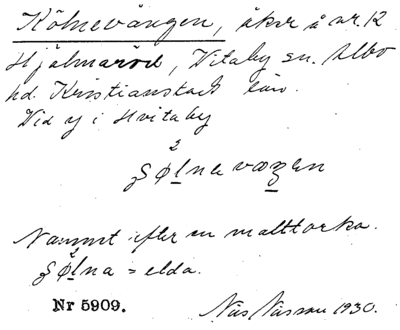 Kölnevången, åker å nr. 12
Hjälmaröd, Vitaby sn. Albo
hd. Kristianstads län.
Vid y i Hvitaby
Namnt efter en malttorka.
= elda.
Nr 5909.
Nils Nilsson 1930.